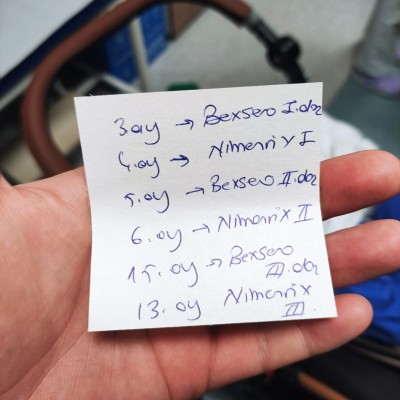 3.ay → Bexsero I.doz
4.ay → Nimenrix I
5.ay → Bexsero II.doz
6.ay → Nimenrix II
15.ay → Bexsero
III.doz
13.ay Nimenrix
III.